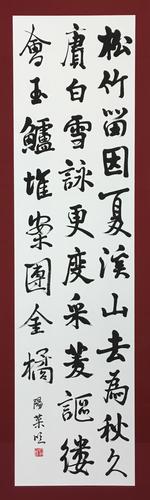 松竹留因夏溪山去為秋久
賡白雪詠更度采菱謳縷
會玉鱸堆案團金橘
陽葉